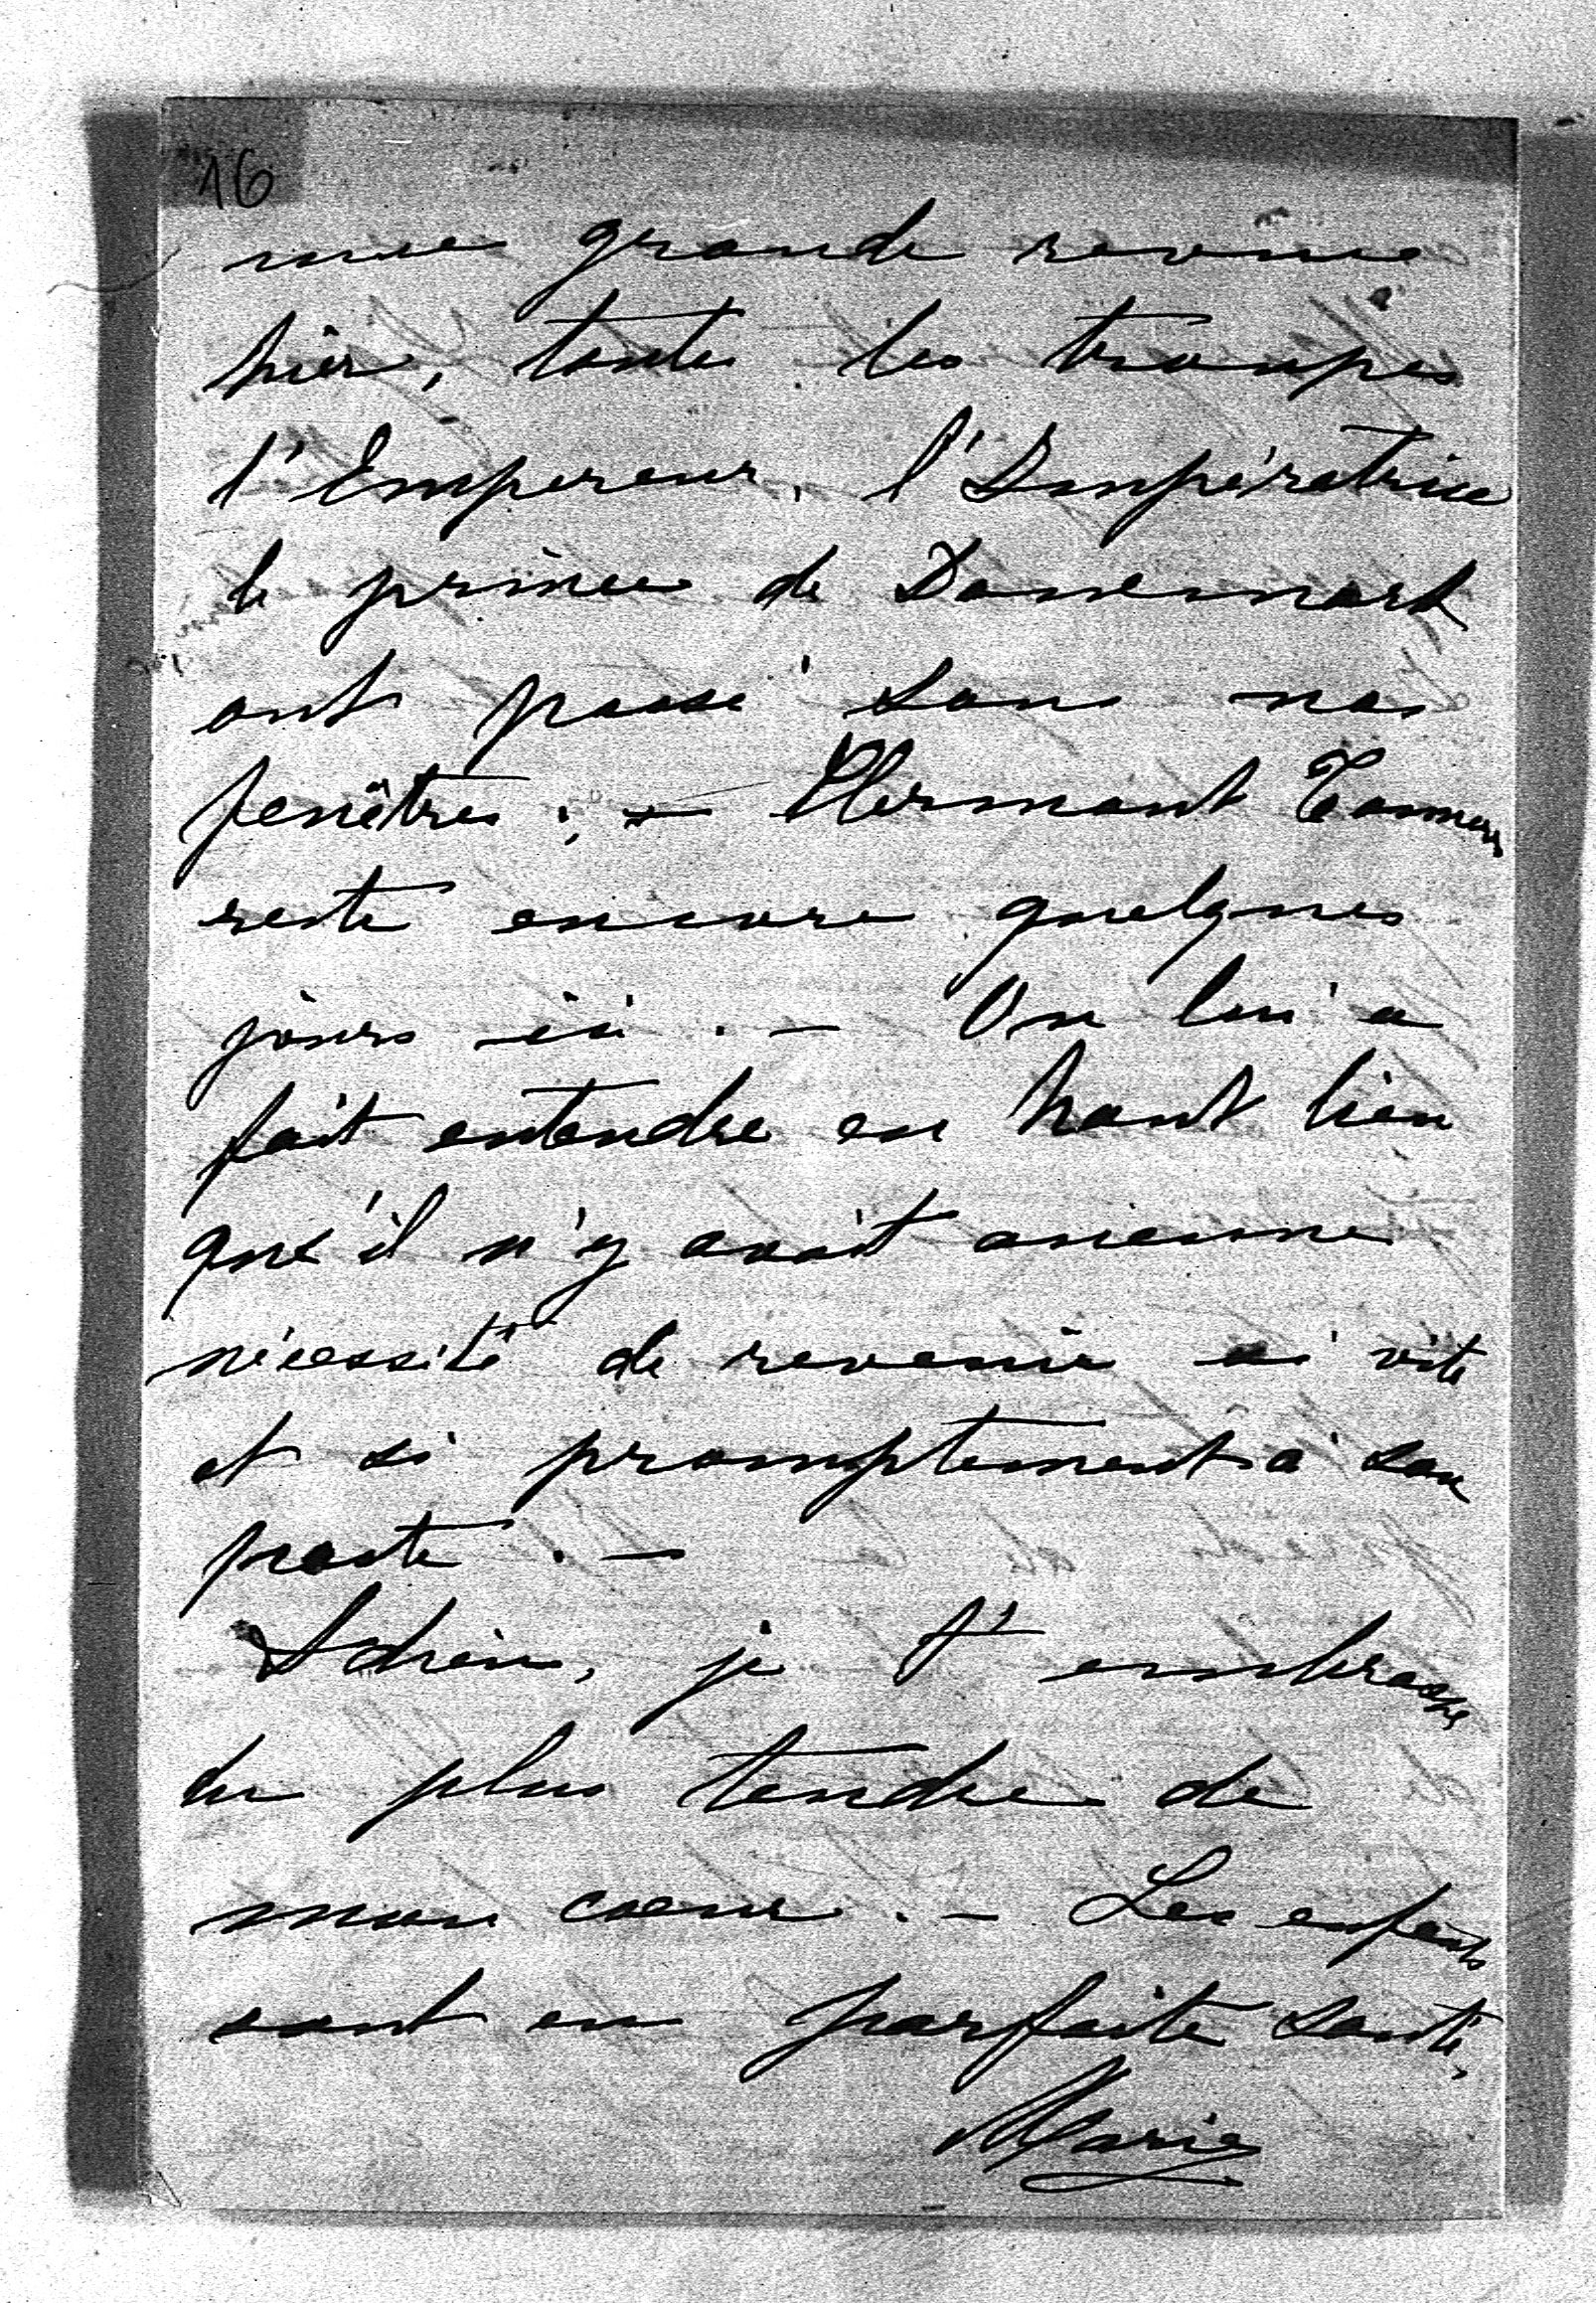 16
une grande revue
hier, toutes les troupes
l'Empereur, l'Impératrice
le prince de Danemark
ont passé sous nos
fenêtres ; — Clermont Tonnerre
reste encore quelques
jours ici . — On lui a
fait entendre en haut lieu
que'il n'y avait aucune
nécessité de revenir si vite
et si promptement à son
poste . —
Adrien, je t'embrasse
du plus tendre de
mon coeur . — Les enfants
sont en parfaite santé,
Marie